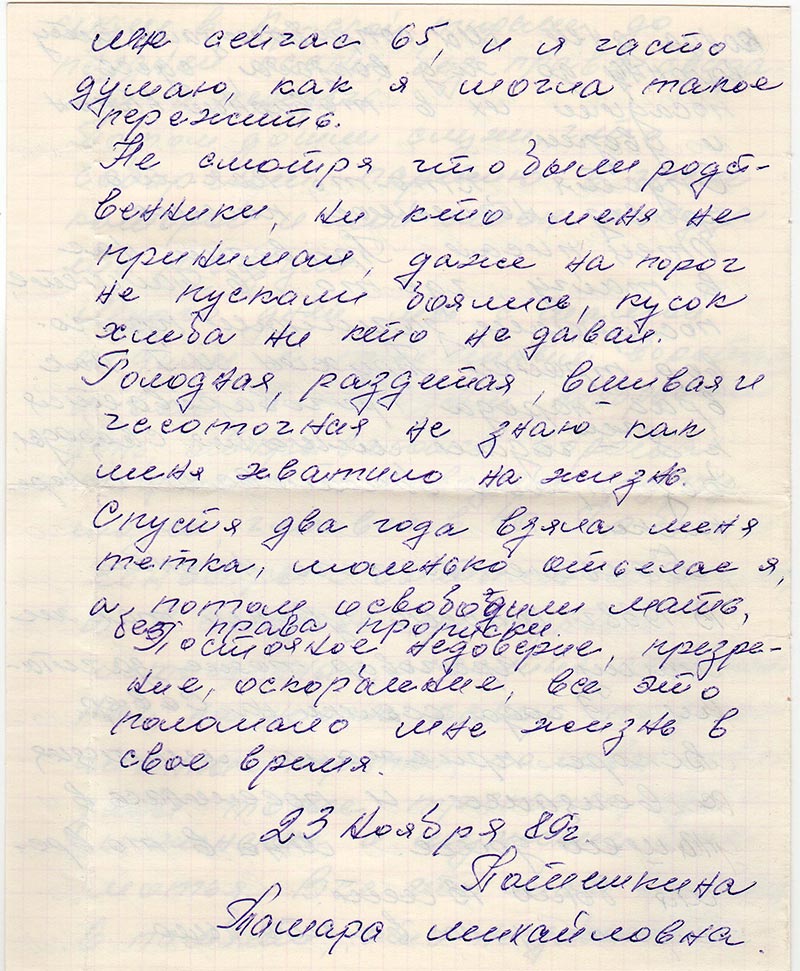 мне сейчас 65, и я часто
думаю, как я могла такое
пережить.
Не смотря что были родст-
венники, ни кто меня не
принимал, даже на порог
не пускали боялись, кусок
хлеба ни кто не давал.
Голодная, раздетая, вшивая и
чесоточная не знаю как
меня хватило на жизнь.
Спустя два года взяла меня
тетка, маленько отъелас я,
а потом освободили мать,
без права прописки.
Постояное недоверие, презре-
ние, оскорбление, все это
поломало мне жизнь в
свое время.
23 Ноября 89г
Потешкина
Тамара михайловна.